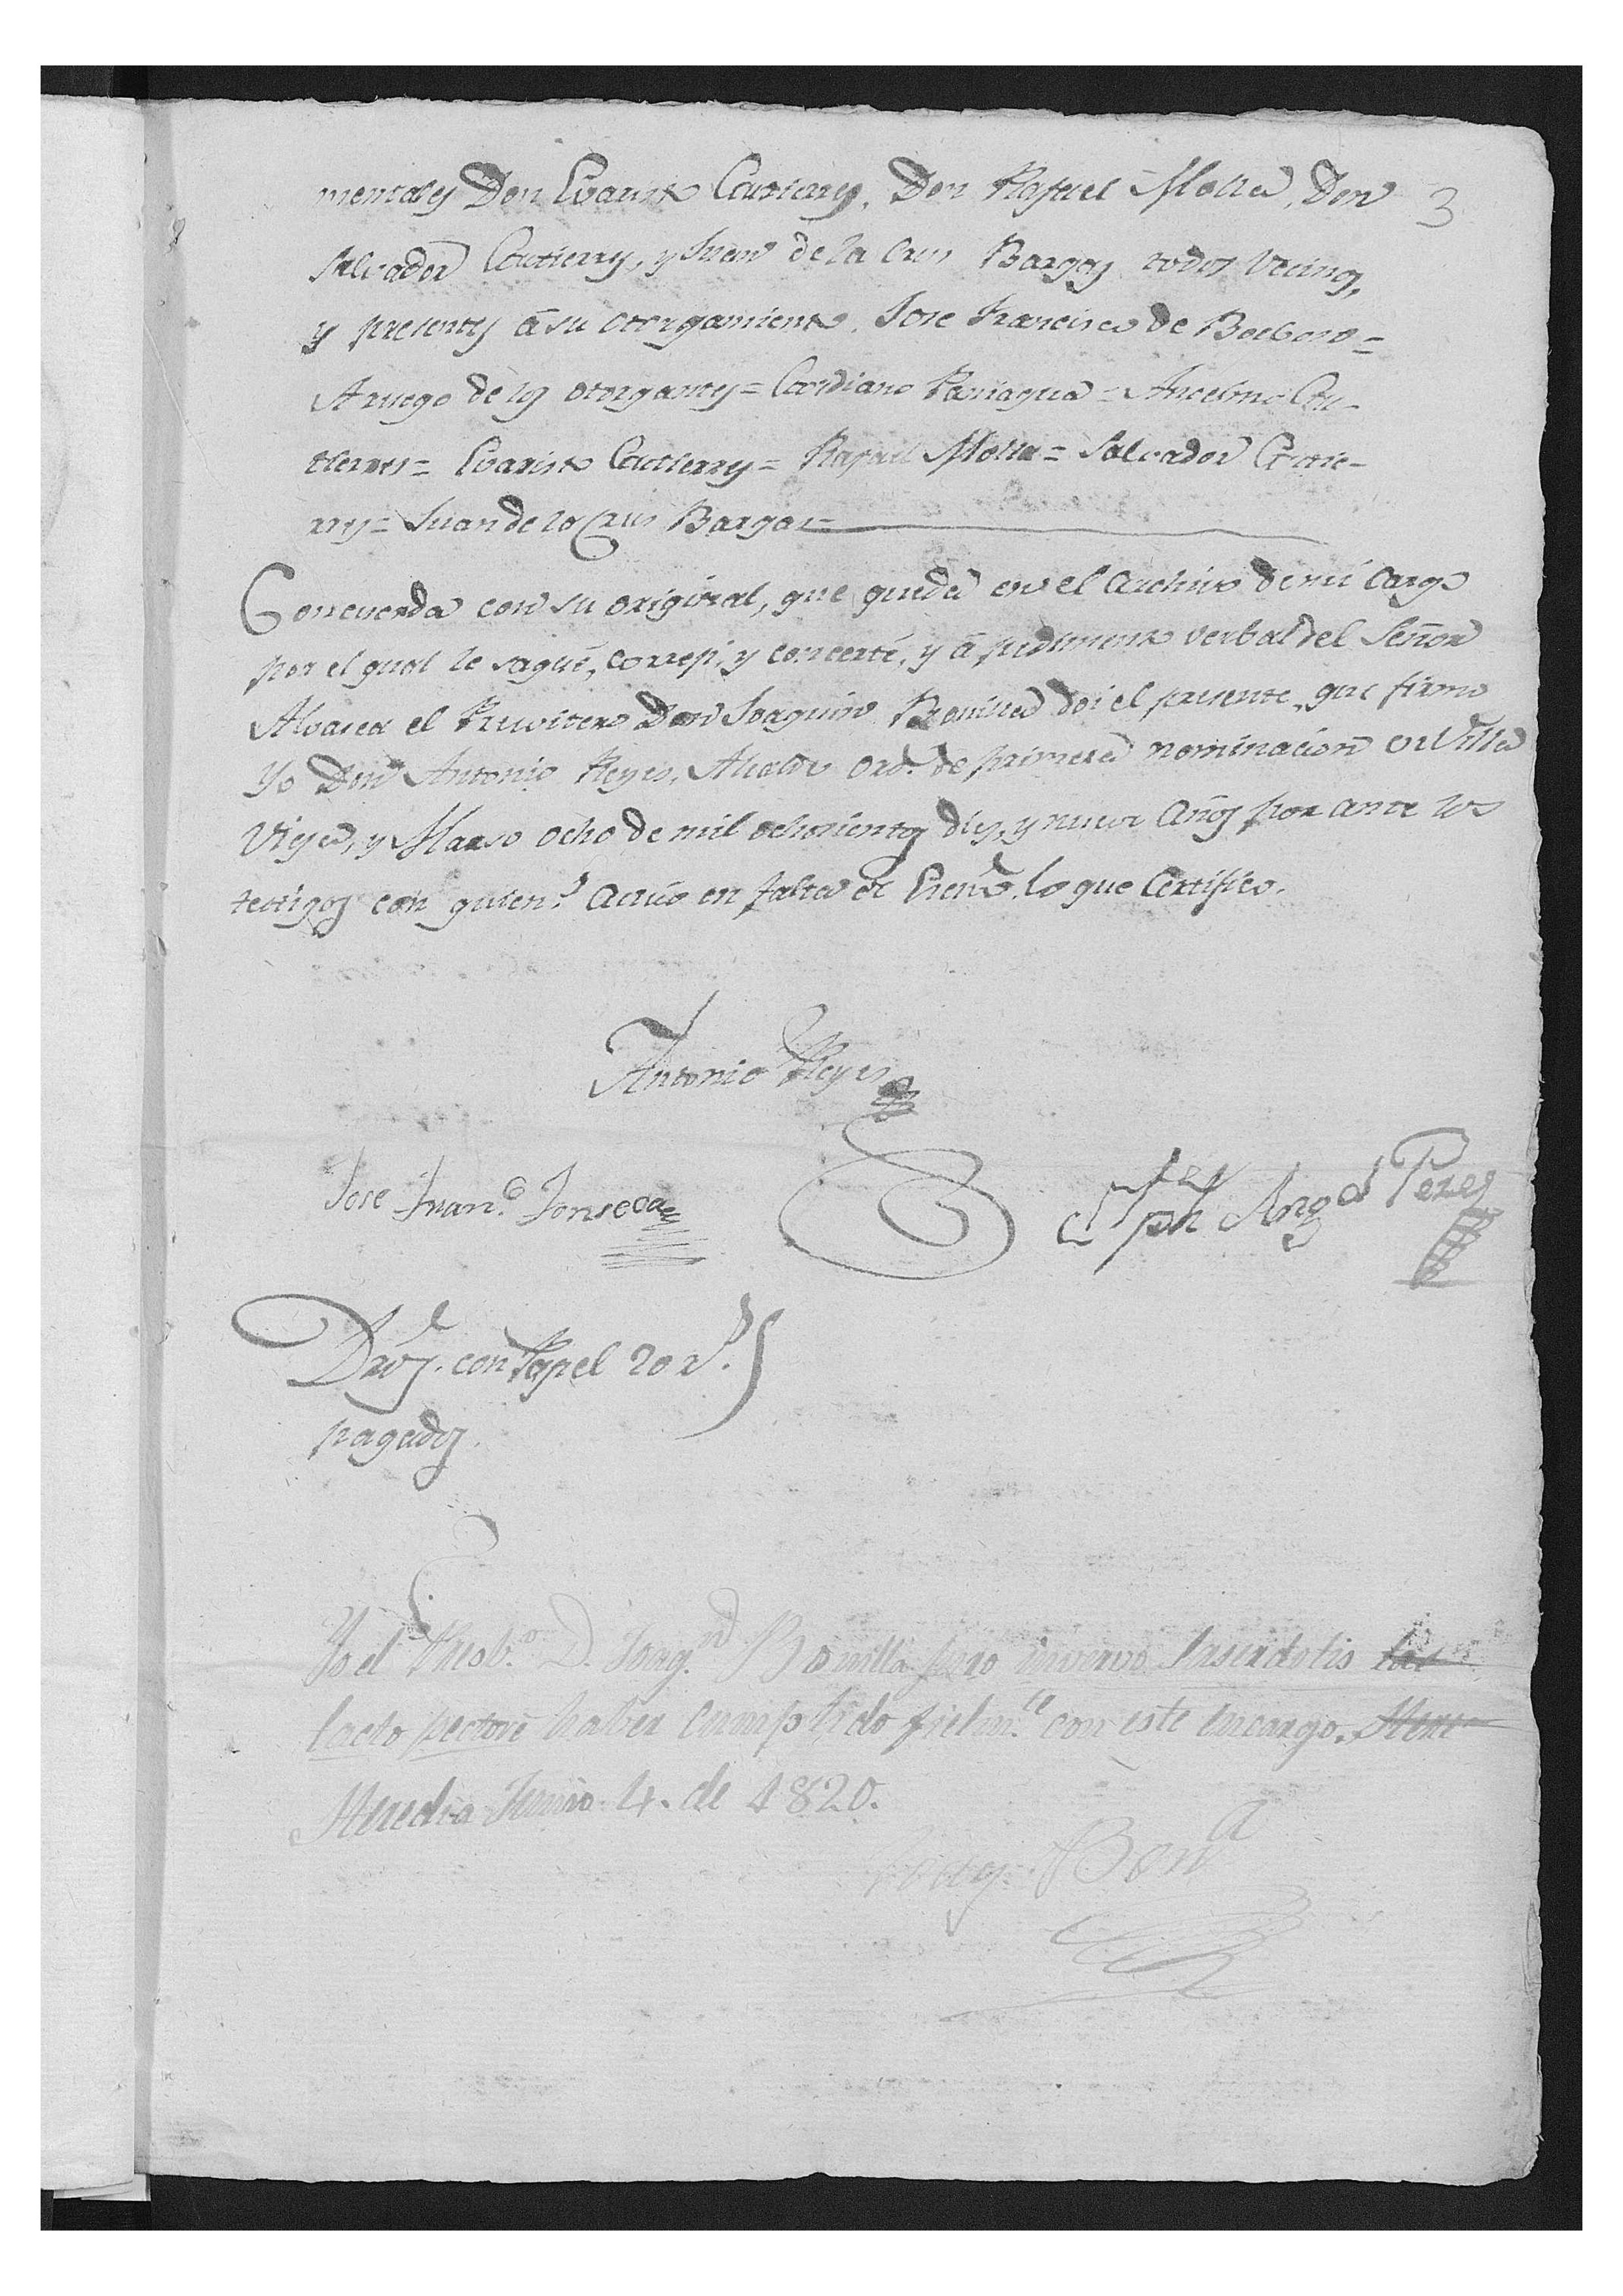 mentales Don Evaristo Gutierres, Don Rafael Molla, Don 3
Salvador Gutierres, y Juan de la Crus Bargas todos Vecinos,
y presentes â su otorgamiento. Jose Francisco de =
A ruego de los otorgantes = Gordiano Paniagua = Ancelmo Gu-
tierres = Evaristo Gutierres = Rafael Molla = Salvador Gutie-
rres = Juan de la Crus Bargas =
Concuerda con su original, que queda en el Archivo de mi cargo
por el qual le saqué, correji, y concerté, y â pedimento verbal del Señor
Alvasea el Presvitero Don Joaquin Bonilla doi el presente, que firmo
Yo Don Antonio Reyes, Alcalde Ord.º de primera nominacion en Villa
Vieja, y Marso ocho de mil ochosientos dies, y nueve Años por ante los
testigos con quien.s actuo en falta de Escnô. lo que Certifico.
Antonio Reyes
Jose Fran.co Fonseca
Jph Ang.l Peres
Dros. con Papel 20 r.s
pagados.
Yo el Presb.o D. Joaq.n Bonilla juro in vervo Saserdotis tac
tacto pectore haber cumplido fielm.te con este encargo. Here
Heredia Junio 4. de 1820.
Joaq. Bon.a